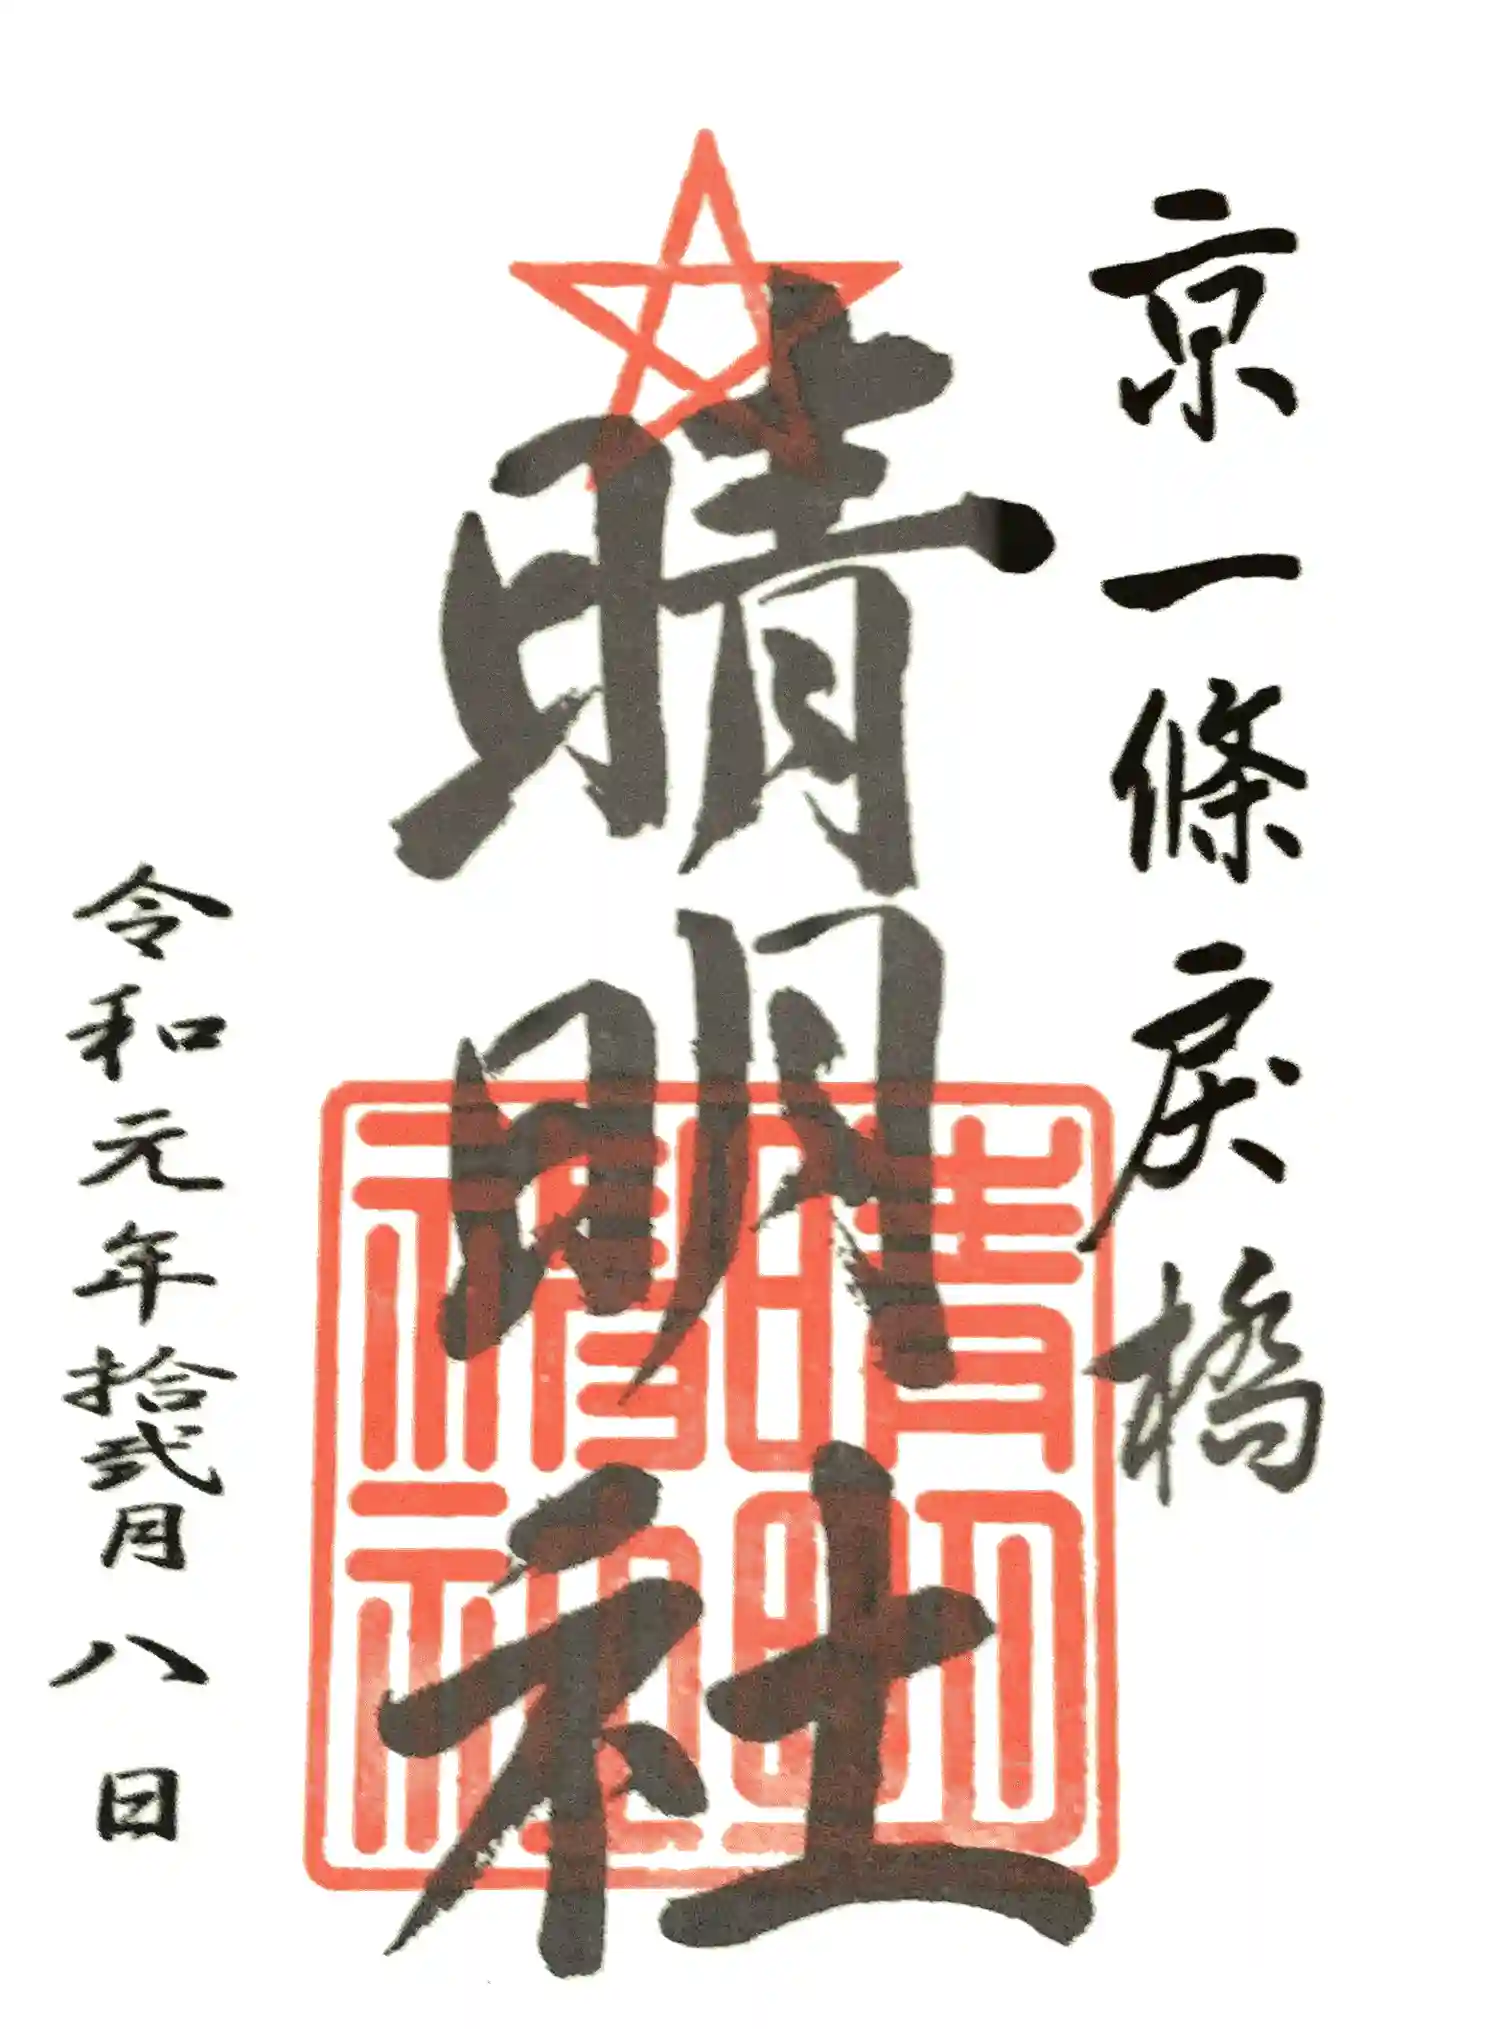 京一條戻橋
晴明社
晴明神社
令和元年拾弐月八日